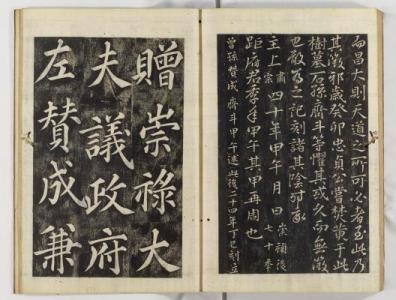 而昌大則天道之所可必者至此乃
其徵邪歲癸卯忠貞公嘗焚黃于此
樹墓石孫齊斗等懼其或久而無徵
也敢爲之記刻諸其陰
主上 肅宗 四十年甲午 月 日 崇禎後七十
距府君 年甲午其甲再周也
曾孫贊成 齊斗甲午述 此後二十四年丁巳刻立
贈崇祿大
夫議政府
左贊成兼